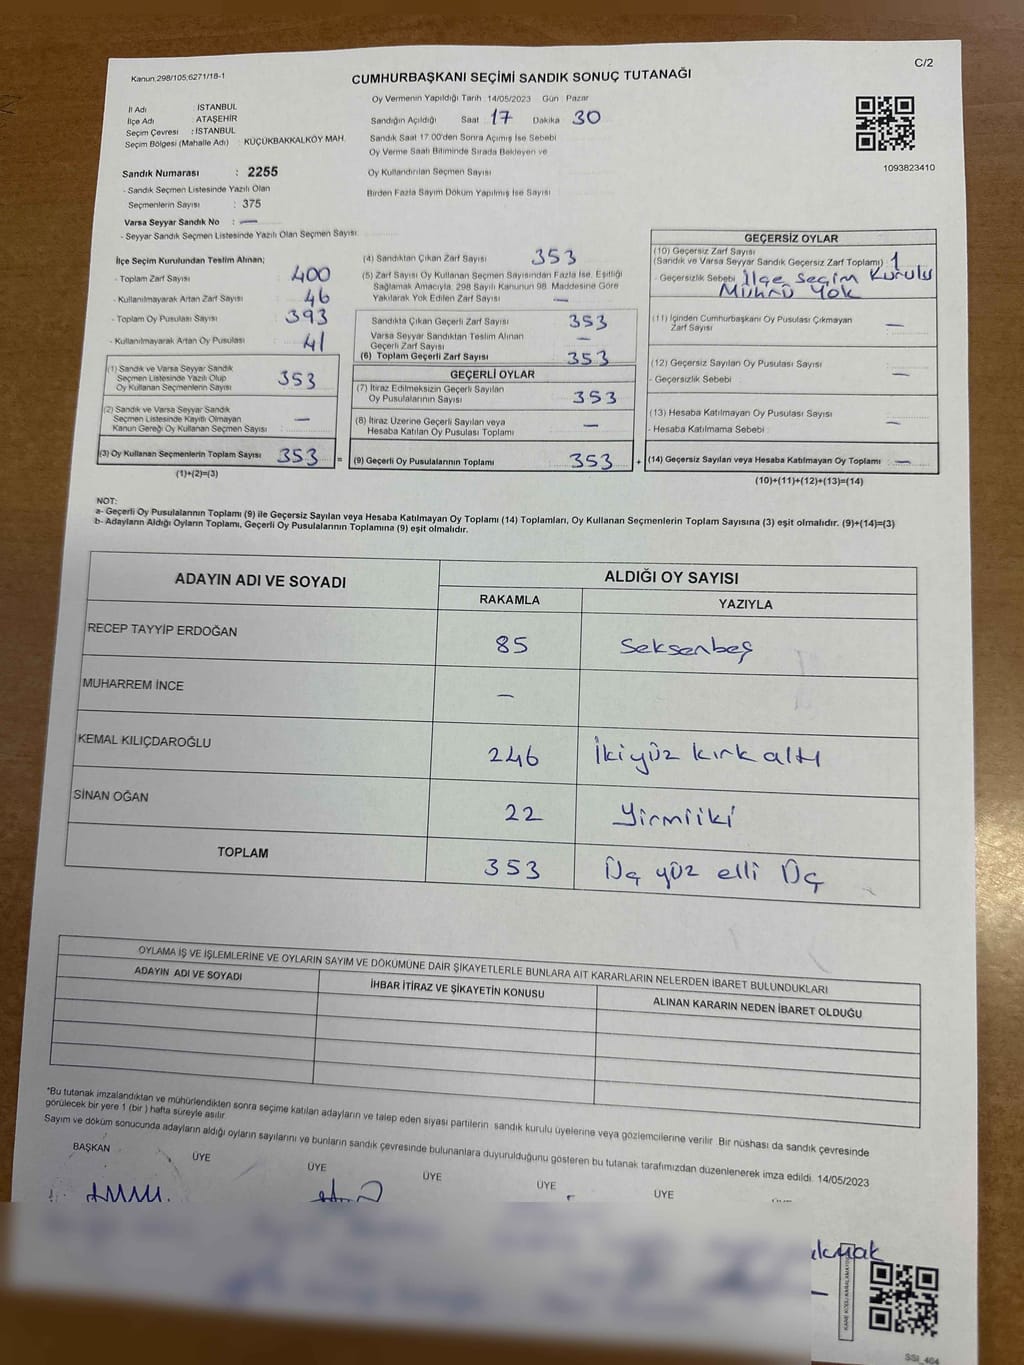 C/2
Kanun;298/105,6271/18-1
CUMHURBAŞKANI SEÇİMİ SANDIK SONUÇ TUTANAĞI
İl Adı : İSTANBUL
İlçe Adı : ATAŞEHİR
Seçim Çevresi : İSTANBUL
Seçim Bölgesi (Mahalle Adı) : KÜÇÜKBAKKALKÖY MAH.
Oy Vermenin Yapıldığı Tarih 14/05/2023 Gün Pazar
Sandığın Açıldığı Saat 17 Dakika 30
Sandık Saat 17:00'den Sonra Açılmış İse Sebebi
Oy Verme Saati Bitiminde Sırada Bekleyen ve
Oy Kullandırılan Seçmen Sayısı
Birden Fazla Sayım Döküm Yapılmış İse Sayısı
1093823410
Sandık Numarası : 2255
- Sandık Seçmen Listesinde Yazılı Olan
Seçmenlerin Sayısı : 375
Varsa Seyyar Sandık No : —
- Seyyar Sandık Seçmen Listesinde Yazılı Olan Seçmen Sayısı
İlçe Seçim Kurulundan Teslim Alınan;
- Toplam Zarf Sayısı 400
- Kullanılmayarak Artan Zarf Sayısı 46
- Toplam Oy Pusulası Sayısı 393
- Kullanılmayarak Artan Oy Pusulası 41
(1) Sandık ve Varsa Seyyar Sandık
Seçmen Listesinde Yazılı Olup
Oy Kullanan Seçmenlerin Sayısı 353
(2) Sandık ve Varsa Seyyar Sandık
Seçmen Listesinde Kayıtlı Olmayan
Kanun Gereği Oy Kullanan Seçmen Sayısı —
(3) Oy Kullanan Seçmenlerin Toplam Sayısı 353 =
(1)+(2)=(3)
(4) Sandıktan Çıkan Zarf Sayısı 353
(5) Zarf Sayısı Oy Kullanan Seçmen Sayısından Fazla İse, Eşitliği
Sağlamak Amacıyla, 298 Sayılı Kanunun 98. Maddesine Göre
Yakılarak Yok Edilen Zarf Sayısı —
Sandıkta Çıkan Geçerli Zarf Sayısı 353
Varsa Seyyar Sandıktan Teslim Alınan
Geçerli Zarf Sayısı —
(6) Toplam Geçerli Zarf Sayısı 353
GEÇERLİ OYLAR
(7) İtiraz Edilmeksizin Geçerli Sayılan
Oy Pusulalarının Sayısı 353
(8) İtiraz Üzerine Geçerli Sayılan veya
Hesaba Katılan Oy Pusulası Toplamı —
(9) Geçerli Oy Pusulalarının Toplamı 353 +
GEÇERSİZ OYLAR
(10) Geçersiz Zarf Sayısı
(Sandık ve Varsa Seyyar Sandık Geçersiz Zarf Toplamı) 1
- Geçersizlik Sebebi İlçe Seçim Kurulu
Mührü Yok
(11) İçinden Cumhurbaşkanı Oy Pusulası Çıkmayan
Zarf Sayısı —
(12) Geçersiz Sayılan Oy Pusulası Sayısı
- Geçersizlik Sebebi —
(13) Hesaba Katılmayan Oy Pusulası Sayısı
- Hesaba Katılmama Sebebi —
(14) Geçersiz Sayılan veya Hesaba Katılmayan Oy Toplamı —
(10)+(11)+(12)+(13)=(14)
NOT:
a- Geçerli Oy Pusulalarının Toplamı (9) ile Geçersiz Sayılan veya Hesaba Katılmayan Oy Toplamı (14) Toplamları, Oy Kullanan Seçmenlerin Toplam Sayısına (3) eşit olmalıdır. (9)+(14)=(3)
b- Adayların Aldığı Oyların Toplamı, Geçerli Oy Pusulalarının Toplamına (9) eşit olmalıdır.
ADAYIN ADI VE SOYADI ALDIĞI OY SAYISI
RAKAMLA YAZIYLA
RECEP TAYYİP ERDOĞAN 85 Seksenbeş
MUHARREM İNCE —
KEMAL KILIÇDAROĞLU 246 İkiyüz kırk altı
SİNAN OĞAN 22 Yirmiiki
TOPLAM 353 Üç yüz elli Üç
OYLAMA İŞ VE İŞLEMLERİNE VE OYLARIN SAYIM VE DÖKÜMÜNE DAİR ŞİKAYETLERLE BUNLARA AİT KARARLARIN NELERDEN İBARET BULUNDUKLARI
ADAYIN ADI VE SOYADI İHBAR İTİRAZ VE ŞİKAYETİN KONUSU ALINAN KARARIN NEDEN İBARET OLDUĞU
*Bu tutanak imzalandıktan ve mühürlendikten sonra seçime katılan adayların ve talep eden siyasi partilerin sandık kurulu üyelerine veya gözlemcilerine verilir. Bir nüshası da sandık çevresinde
görülecek bir yere 1 (bir) hafta süreyle asılır.
Sayım ve döküm sonucunda adayların aldığı oyların sayılarını ve bunların sandık çevresinde bulunanlara duyurulduğunu gösteren bu tutanak tarafımızdan düzenlenerek imza edildi. 14/05/2023
BAŞKAN ÜYE ÜYE ÜYE ÜYE ÜYE
SSI_404